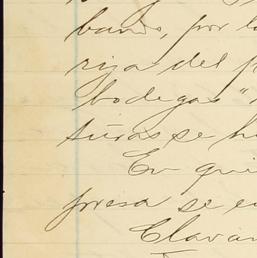 bano, por l
rija del p
bodegas "
turas se h
En qui
presa se e
Clavar